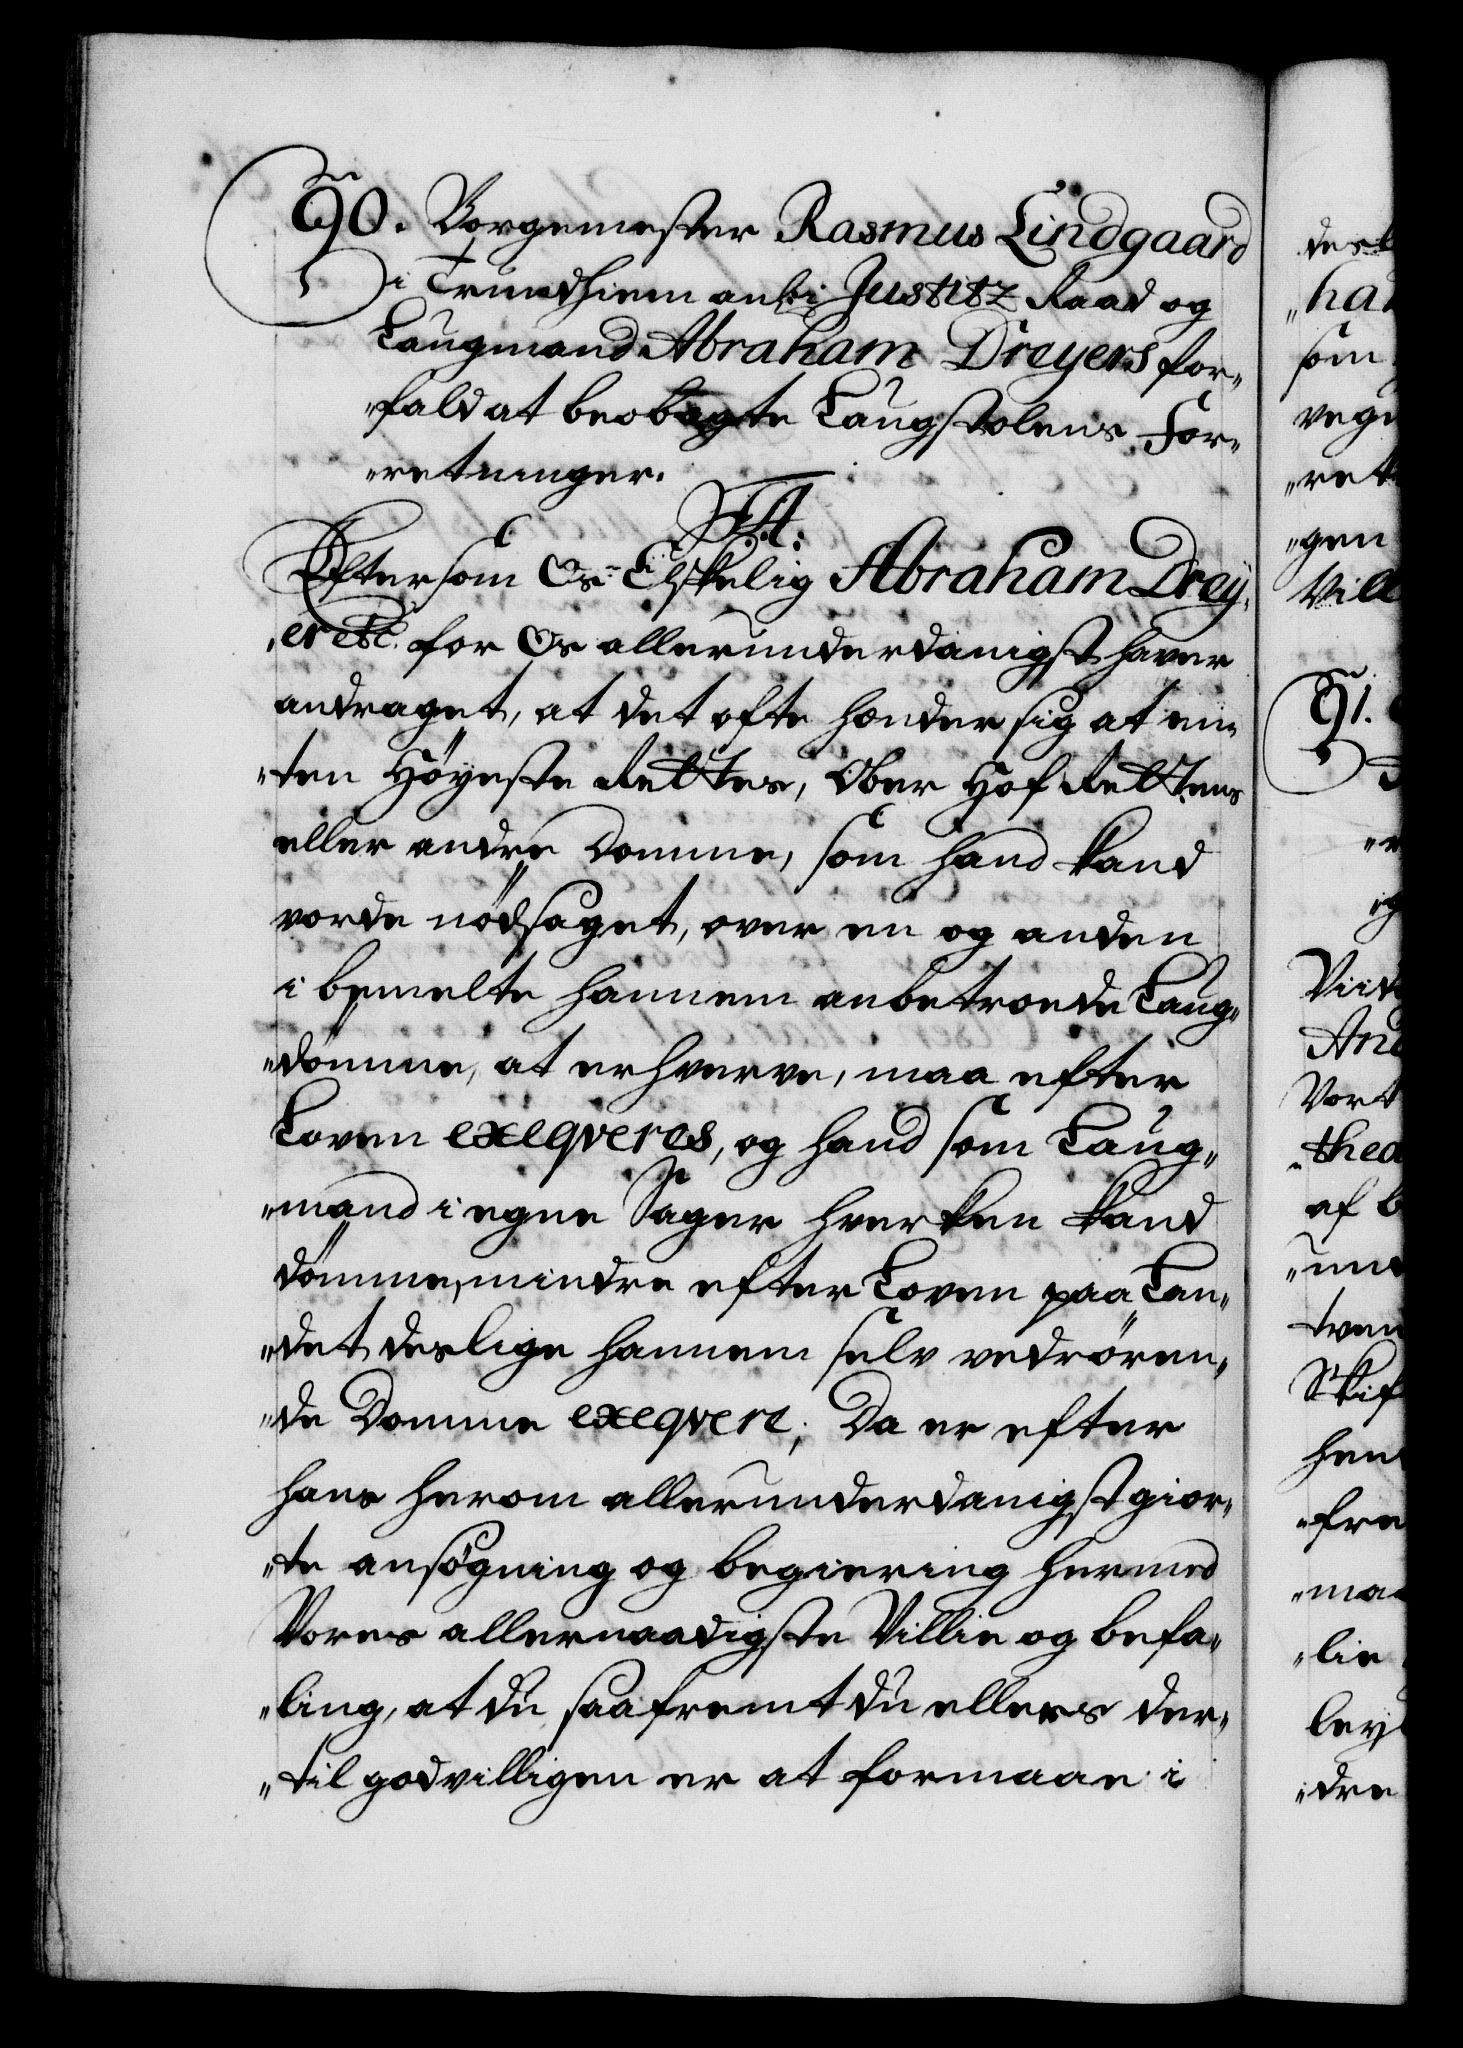 90. Borgemester Rasmus Lindgaard
i Trundhiem an: i Justitz Raad og
Laugmand Abraham Dreyers for„
„fald at beobagte Laugstolens For„
„retninger.
F: 4.
Eftersom Os Elskelig Abraham Drey„
„er etc. for Os allerunderdanigst haver
andraget, at det ofte hender sig at en„
„ten Høyeste Rettes, Ober Hof Rettens
eller andre Domme, som hand kand
vorde nødsaget, over en og anden
i bemelte hannem anbetroede Laug„
„dømme, at erhverve, maa efter
Loven exeqveres, og hand som Laug„
„mand i egne Sager hverken kand
dømme, mindre efter Loven paa Lan„
„det deslige hannem selv vedrøren„
„de Domme exeqvere; Da er efter
hans herom allerunderdanigst gior„
„te ansøgning og begiering hermed
Vores allernaadigste Villie og befa„
„ling, at du, saafremt du ellers der„
„til godvilligen er at formaae i
des
„ha
som
vegn
„rett
„gen
Vill
91.
Vort
„thea
af b
„und
tven
Skif
hen
„fre
„maa
„lie
ley
„dre